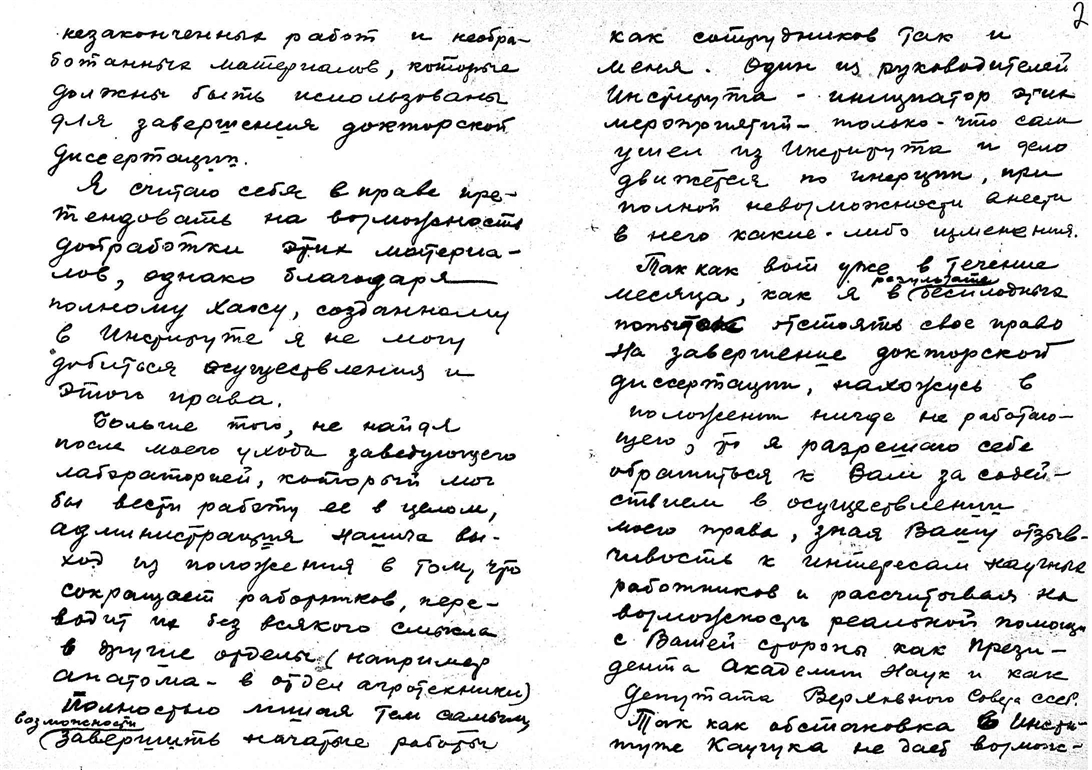 незаконченных работ и необра-
ботанных материалов, которые
должны быть использованы
для завершения докторской
диссертации.
Я считаю себя вправе пре-
тендовать на возможность
доработки этих материа-
лов, однако благодаря
полному хаосу, созданному
в Институте я не могу
добиться осуществления и
этого права.
Больше того, не найдя
после моего ухода заведующего
лабораторией, который мог
бы вести работу ее в целом,
администрация нашла вы-
ход из положения в том, что
сокращает работников, пере-
водит их без всякого смысла
в другие отделы (например
анатома - в отдел агротехники)
Полностью лишая тем самым
возможности
завершить начатые работы
2
как сотрудников так и
меня. Один из руководителей
Института - инициатор этих
мероприятий - только-что сам
ушел из Института и дело
движется по инерции, при
полной невозможности внести
в него какие-либо изменения.
Так как вот уже в течение
результате
месяца, как я в бесплодных
попыток отстоять свое право
на завершение докторской
диссертации, нахожусь в
положении нигде не работаю-
щего, то я разрешаю себе
обратиться к Вам за содей-
ствием в осуществлении
моего права, зная Вашу отзыв-
чивость к интересам научных
работников и рассчитывая на
возможность реальной помощи
с Вашей стороны как Прези-
дента Академии Наук и как
депутата Верховного Совета СССР.
Так как обстановка в Инсти-
туте Каучука не дает возмож-